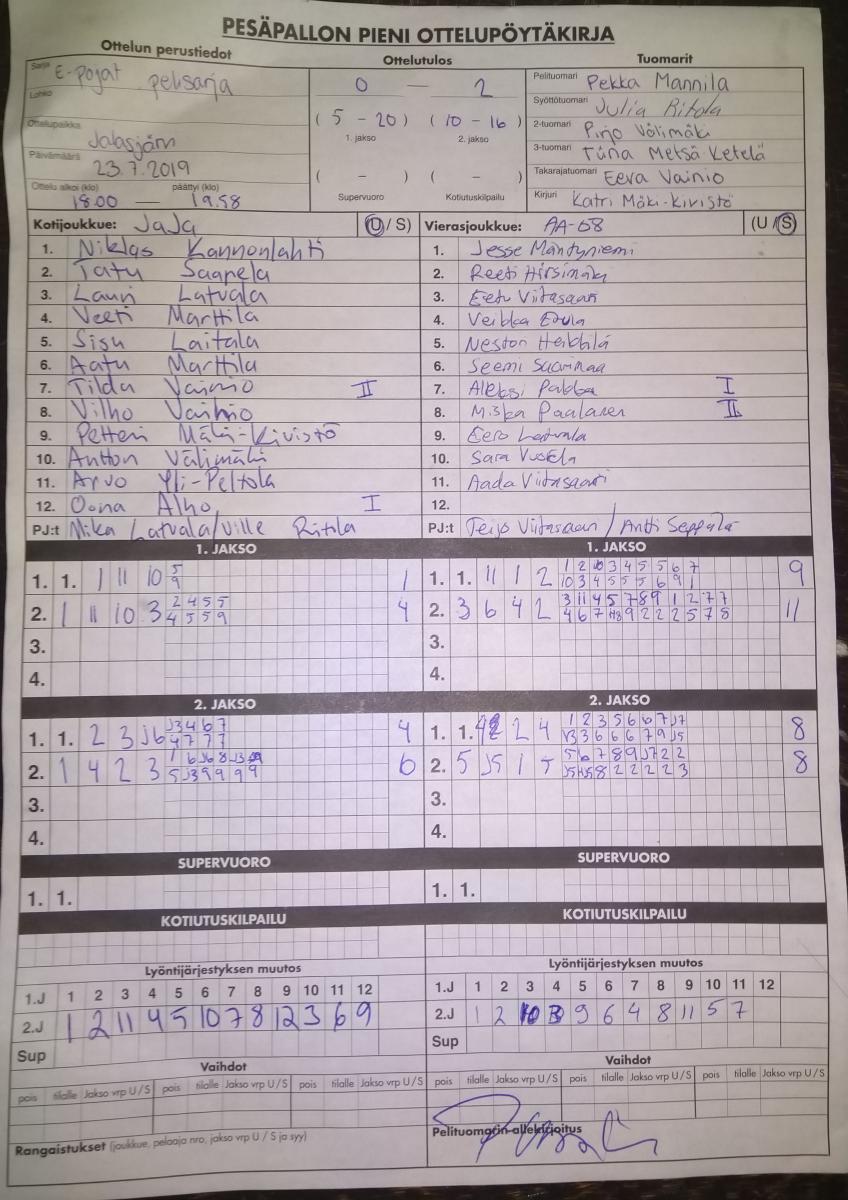 PESÄPALLON PIENI OTTELUPÖYTÄKIRJA
Ottelun perustiedot
Sarja E-pojat pelisarja
Lohko
Ottelupaikka Jalasjärvi
Päivämäärä 23.7.2019
Ottelu alkoi (klo) päättyi (klo)
18.00 — 19.58
Ottelutulos
0 — 2
(5 - 20) (10 - 16)
1. jakso 2. jakso
( - ) ( - )
Supervuoro Kotiutuskilpailu
Tuomarit
Pelituomari Pekka Mannila
Syöttötuomari Julia Ritola
2-tuomari Pirjo Välimäki
3-tuomari Tiina Metsä Ketelä
Takarajatuomari Eeva Vainio
Kirjuri Katri Mäki-Kivistö
Kotijoukkue: JaJa (U / S)
1. Niklas Kannonlahti
2. Tatu Saarela
3. Lauri Latvala
4. Veeti Marttila
5. Sisu Laitala
6. Aatu Marttila
7. Tilda Vainio II
8. Vilho Vainio
9. Petteri Mäki-Kivistö
10. Antton Välimäki
11. Arvo Yli-Peltola
12. Oona Alho I
PJ:t Mika Latvala/Ville Ritola
Vierasjoukkue: AA-68 (U / S)
1. Jesse Mäntyniemi
2. Reeti Hirsimäki
3. Eetu Viitasaari
4. Veikka
5. Heikkilä
6. Seemi
7. Aleksi I
8. Miska Paalanen II
9. Eero Latvala
10. Sara
11. Aada Viitasaari
12.
PJ:t Teijo Viitasaari / Antti Seppälä
1. JAKSO
1. 1. 1 11 10 5 1
9
2. 1 11 10 3 2 4 5 5 4
4 5 5 9
3.
4.
1. JAKSO
1. 1. 11 1 2 1 2 10 3 4 5 5 6 7 9
10 3 4 5 5 5 6 9 1
2. 3 6 4 2 3 11 4 5 7 8 9 1 2 7 7 11
3.
4.
2. JAKSO
1. 1. 2 3 J6 J3 4 6 7 4
4 7 7 7
2. 1 4 2 3 6
5 J3 9 9 9 9
3.
4.
2. JAKSO
1. 1. 2 4 1 2 3 5 6 6 7 J7 8
3 6 6 6 7 9 J5
2. 5 J5 1 5 6 7 8 9 J7 2 2 8
8 2 2 2 2 3
3.
4.
SUPERVUORO
1. 1.
SUPERVUORO
1. 1.
KOTIUTUSKILPAILU
KOTIUTUSKILPAILU
Lyöntijärjestyksen muutos
1.J 1 2 3 4 5 6 7 8 9 10 11 12
2.J 1 2 11 4 5 10 7 8 12 3 6 9
Sup
Lyöntijärjestyksen muutos
1.J 1 2 3 4 5 6 7 8 9 10 11 12
2.J 1 2 10 3 9 6 4 8 11 5 7
Sup
Vaihdot
pois tilalle Jakso vrp U / S pois tilalle Jakso vrp U / S pois tilalle Jakso vrp U / S
Vaihdot
pois tilalle Jakso vrp U / S pois tilalle Jakso vrp U / S pois tilalle Jakso vrp U / S
Rangaistukset (joukkue, pelaaja nro, jakso vrp U / S ja syy)
Pelituomarin allekirjoitus